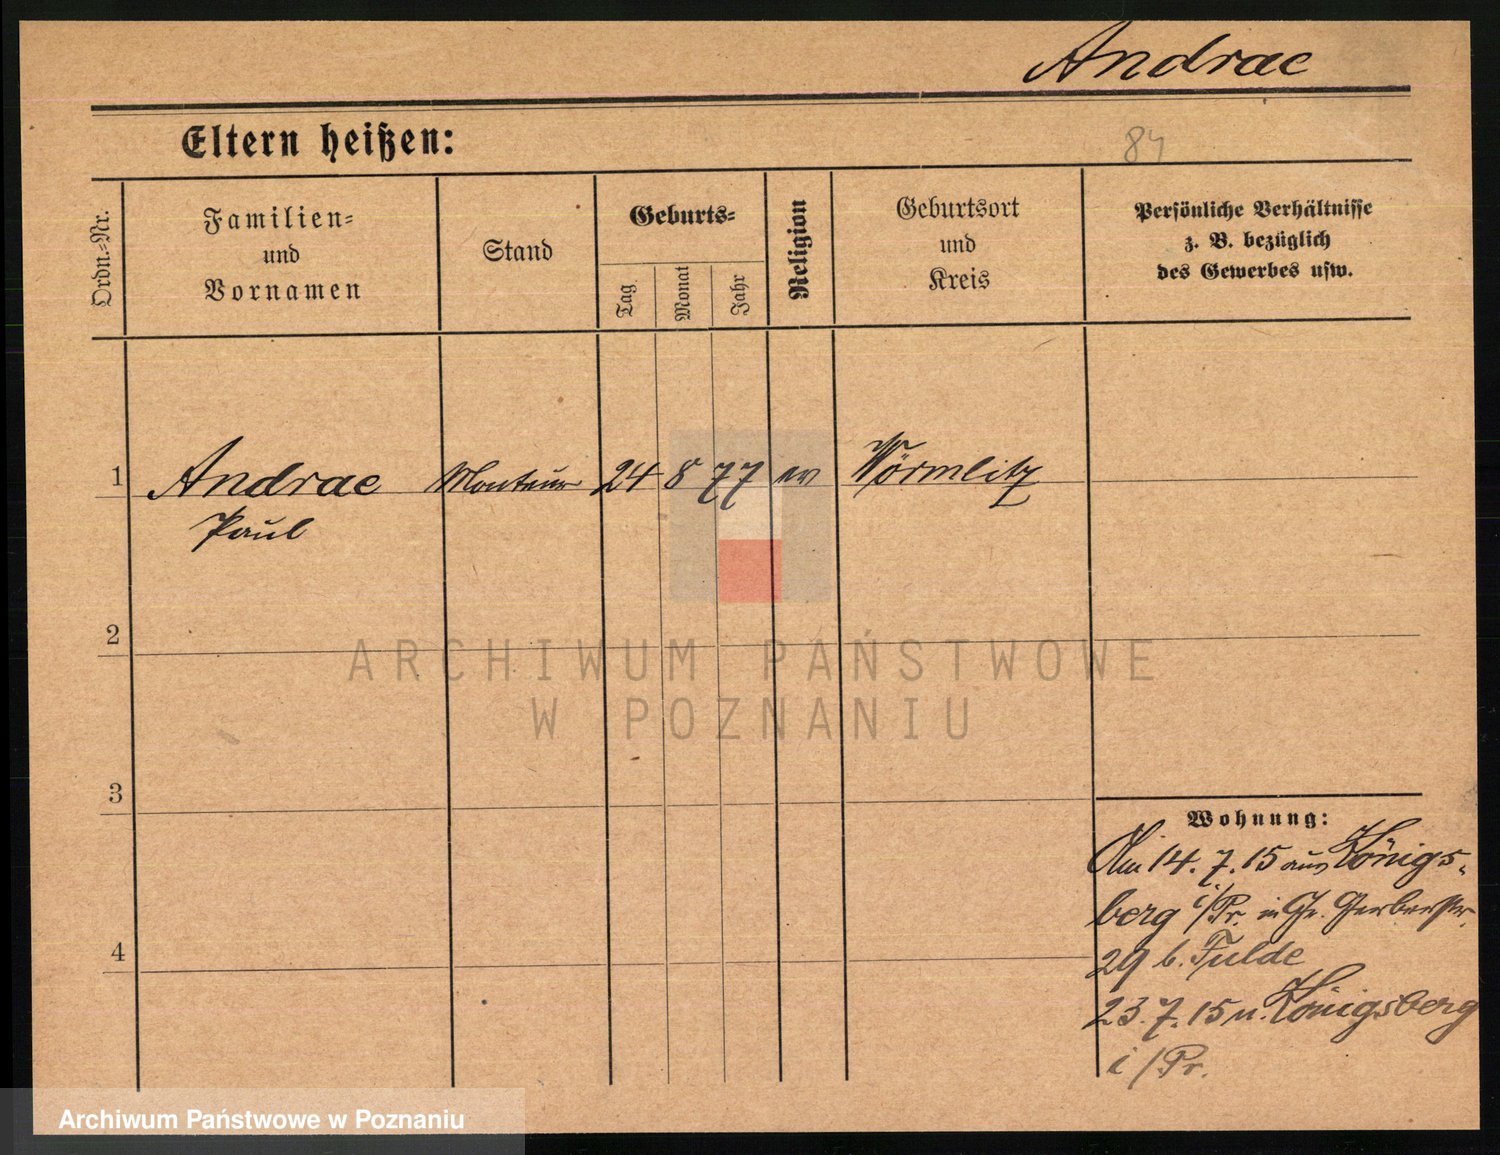 Andrae
Eltern heißen:
84
Ordn.-Nr.
Familien-
und
Vornamen
Stand
Geburts-
Tag
Monat
Jahr
Religion
Geburtsort
und
Kreis
Persönliche Verhältnisse
z. B. bezüglich
des Gewerbes usw.
1 Andrae Monteur 24 8 77 ev Wörmlitz
Paul
2
ARCHIWUM PAŃSTWOWE
W POZNANIU
3
Wohnung:
Am 14. 7. 15 aus Königs-
berg i/Pr. in Gr. Gerberstr.
4
29 b. Fulde
23. 7. 15 n. Königsberg
i/Pr.
Archiwum Państwowe w Poznaniu